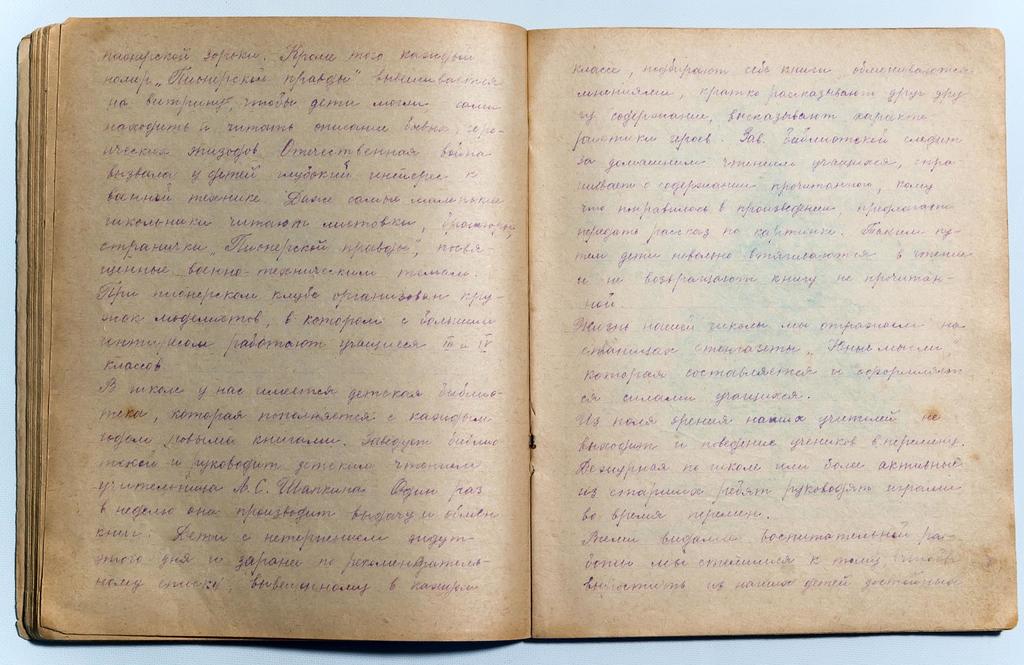 пионерской зорьки. Кроме того каждый
номер „Пионерской правды" вывешивается
на витрину, чтобы дети могли сами
находить и читать описание боевых, геро-
ических эпизодов. Отечественная война
вызвала у детей глубокий интерес к
военной технике. Даже самые маленькие
школьники читают листовки, брошюры,
странички „Пионерской правды", посвя-
щенные военно-техническим темам.
При пионерском клубе организован кру-
жок моделистов, в котором с большим
интересом работают учащиеся III и IV
классов.
В школе у нас имеется детская библио-
тека, которая пополняется с каждым
годом новыми книгами. Заведует библио
текой и руководит детским чтением
учительница А.С. Шапкина. Один раз
в неделю она производит выдачу и обмен
книг. Дети с нетерпением ждут
этого дня и заранее по рекомендатель-
ному списку, вывешенному в каждом
классе, подбирают себе книги, обмениваются
мнениями, кратко рассказывают друг дру
гу содержание, высказывают характе
ристики героев. Зав. библиотекой следит
за домашним чтением учащихся, спра
шивает о содержании прочитанного, кому
что понравилось в произведении, предлагает
передать рассказ по картинке. Таким пу-
тем дети невольно втягиваются в чтение
и не возвращают книгу не прочитан-
ной.
Жизнь нашей школы мы отражаем на
станицах стенгазеты „Юные мысли",
которая составляется и оформляет
ся силами учащихся.
Из поля зрения наших учителей не
выходит и поведение учеников в перемену.
Дежурная по школе или более активные
из старших ребят руководят играми
во время перемен.
Всеми видами воспитательной ра-
боты мы стремимся к тому, чтобы
вырастить из наших детей достойных